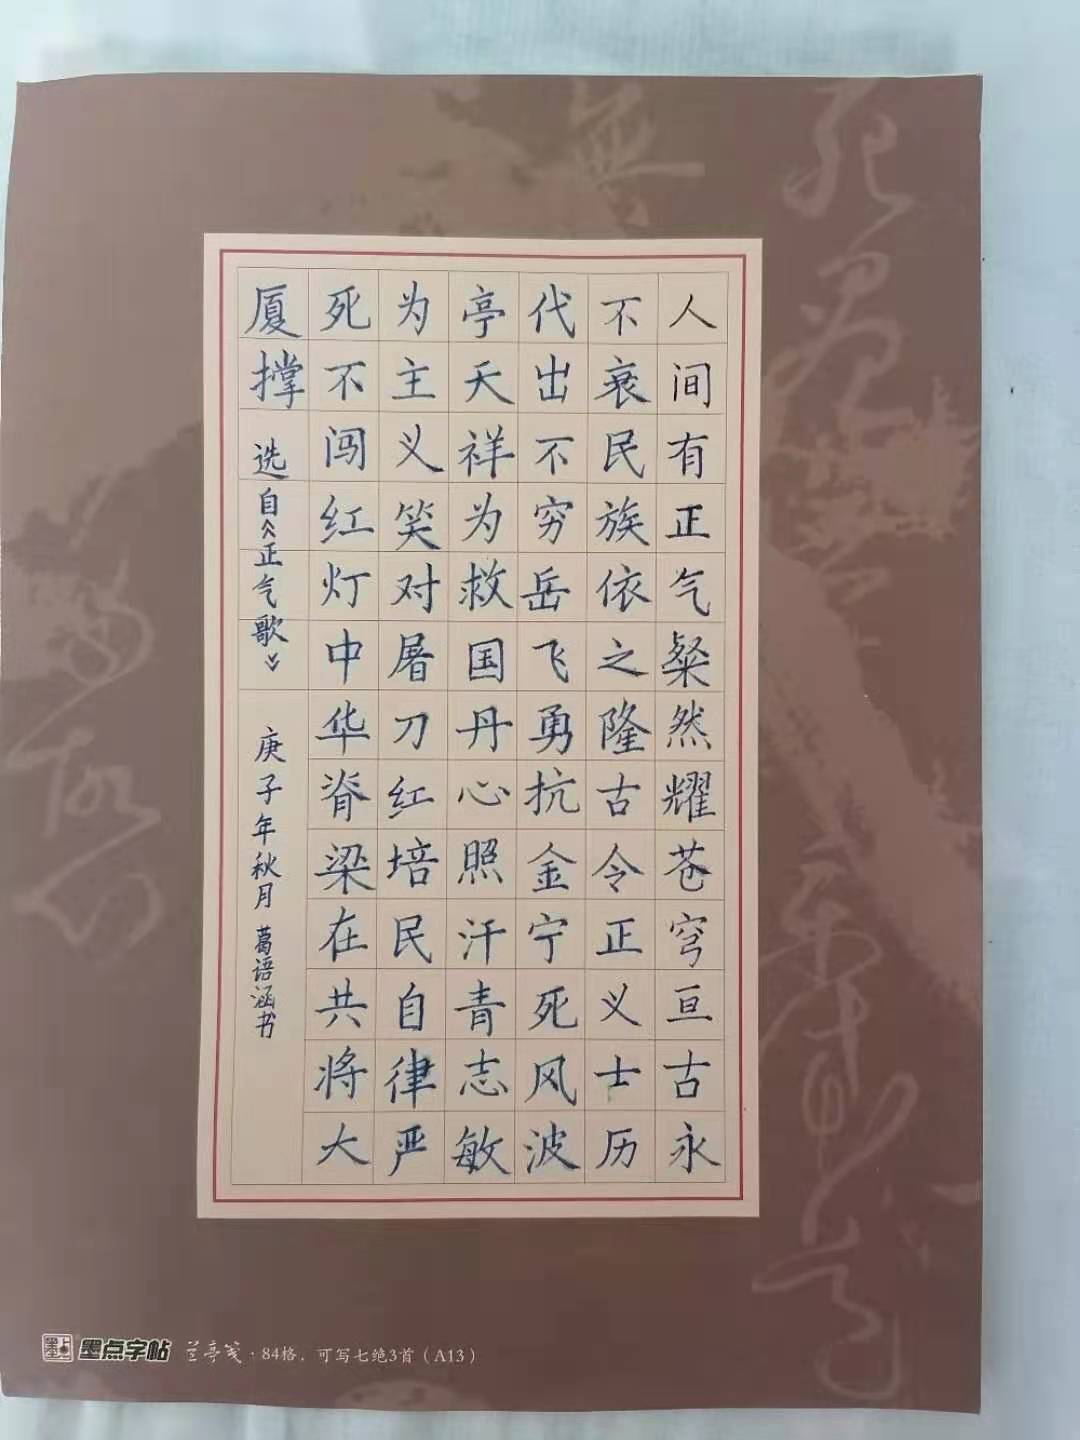 人间有正气粲然耀苍穹亘古永
不衰民族依之隆古令正义士历
代出不穷岳飞勇抗金宁死风波
亭天祥为救国丹心照汗青志敏
为主义笑对屠刀红培民自律严
死不闯红灯中华脊梁在共将大
厦撑
选自《正气歌》
庚子年秋月 葛语涵书
墨点 墨点字帖 兰亭笺·84格，可写七绝3首（A13）